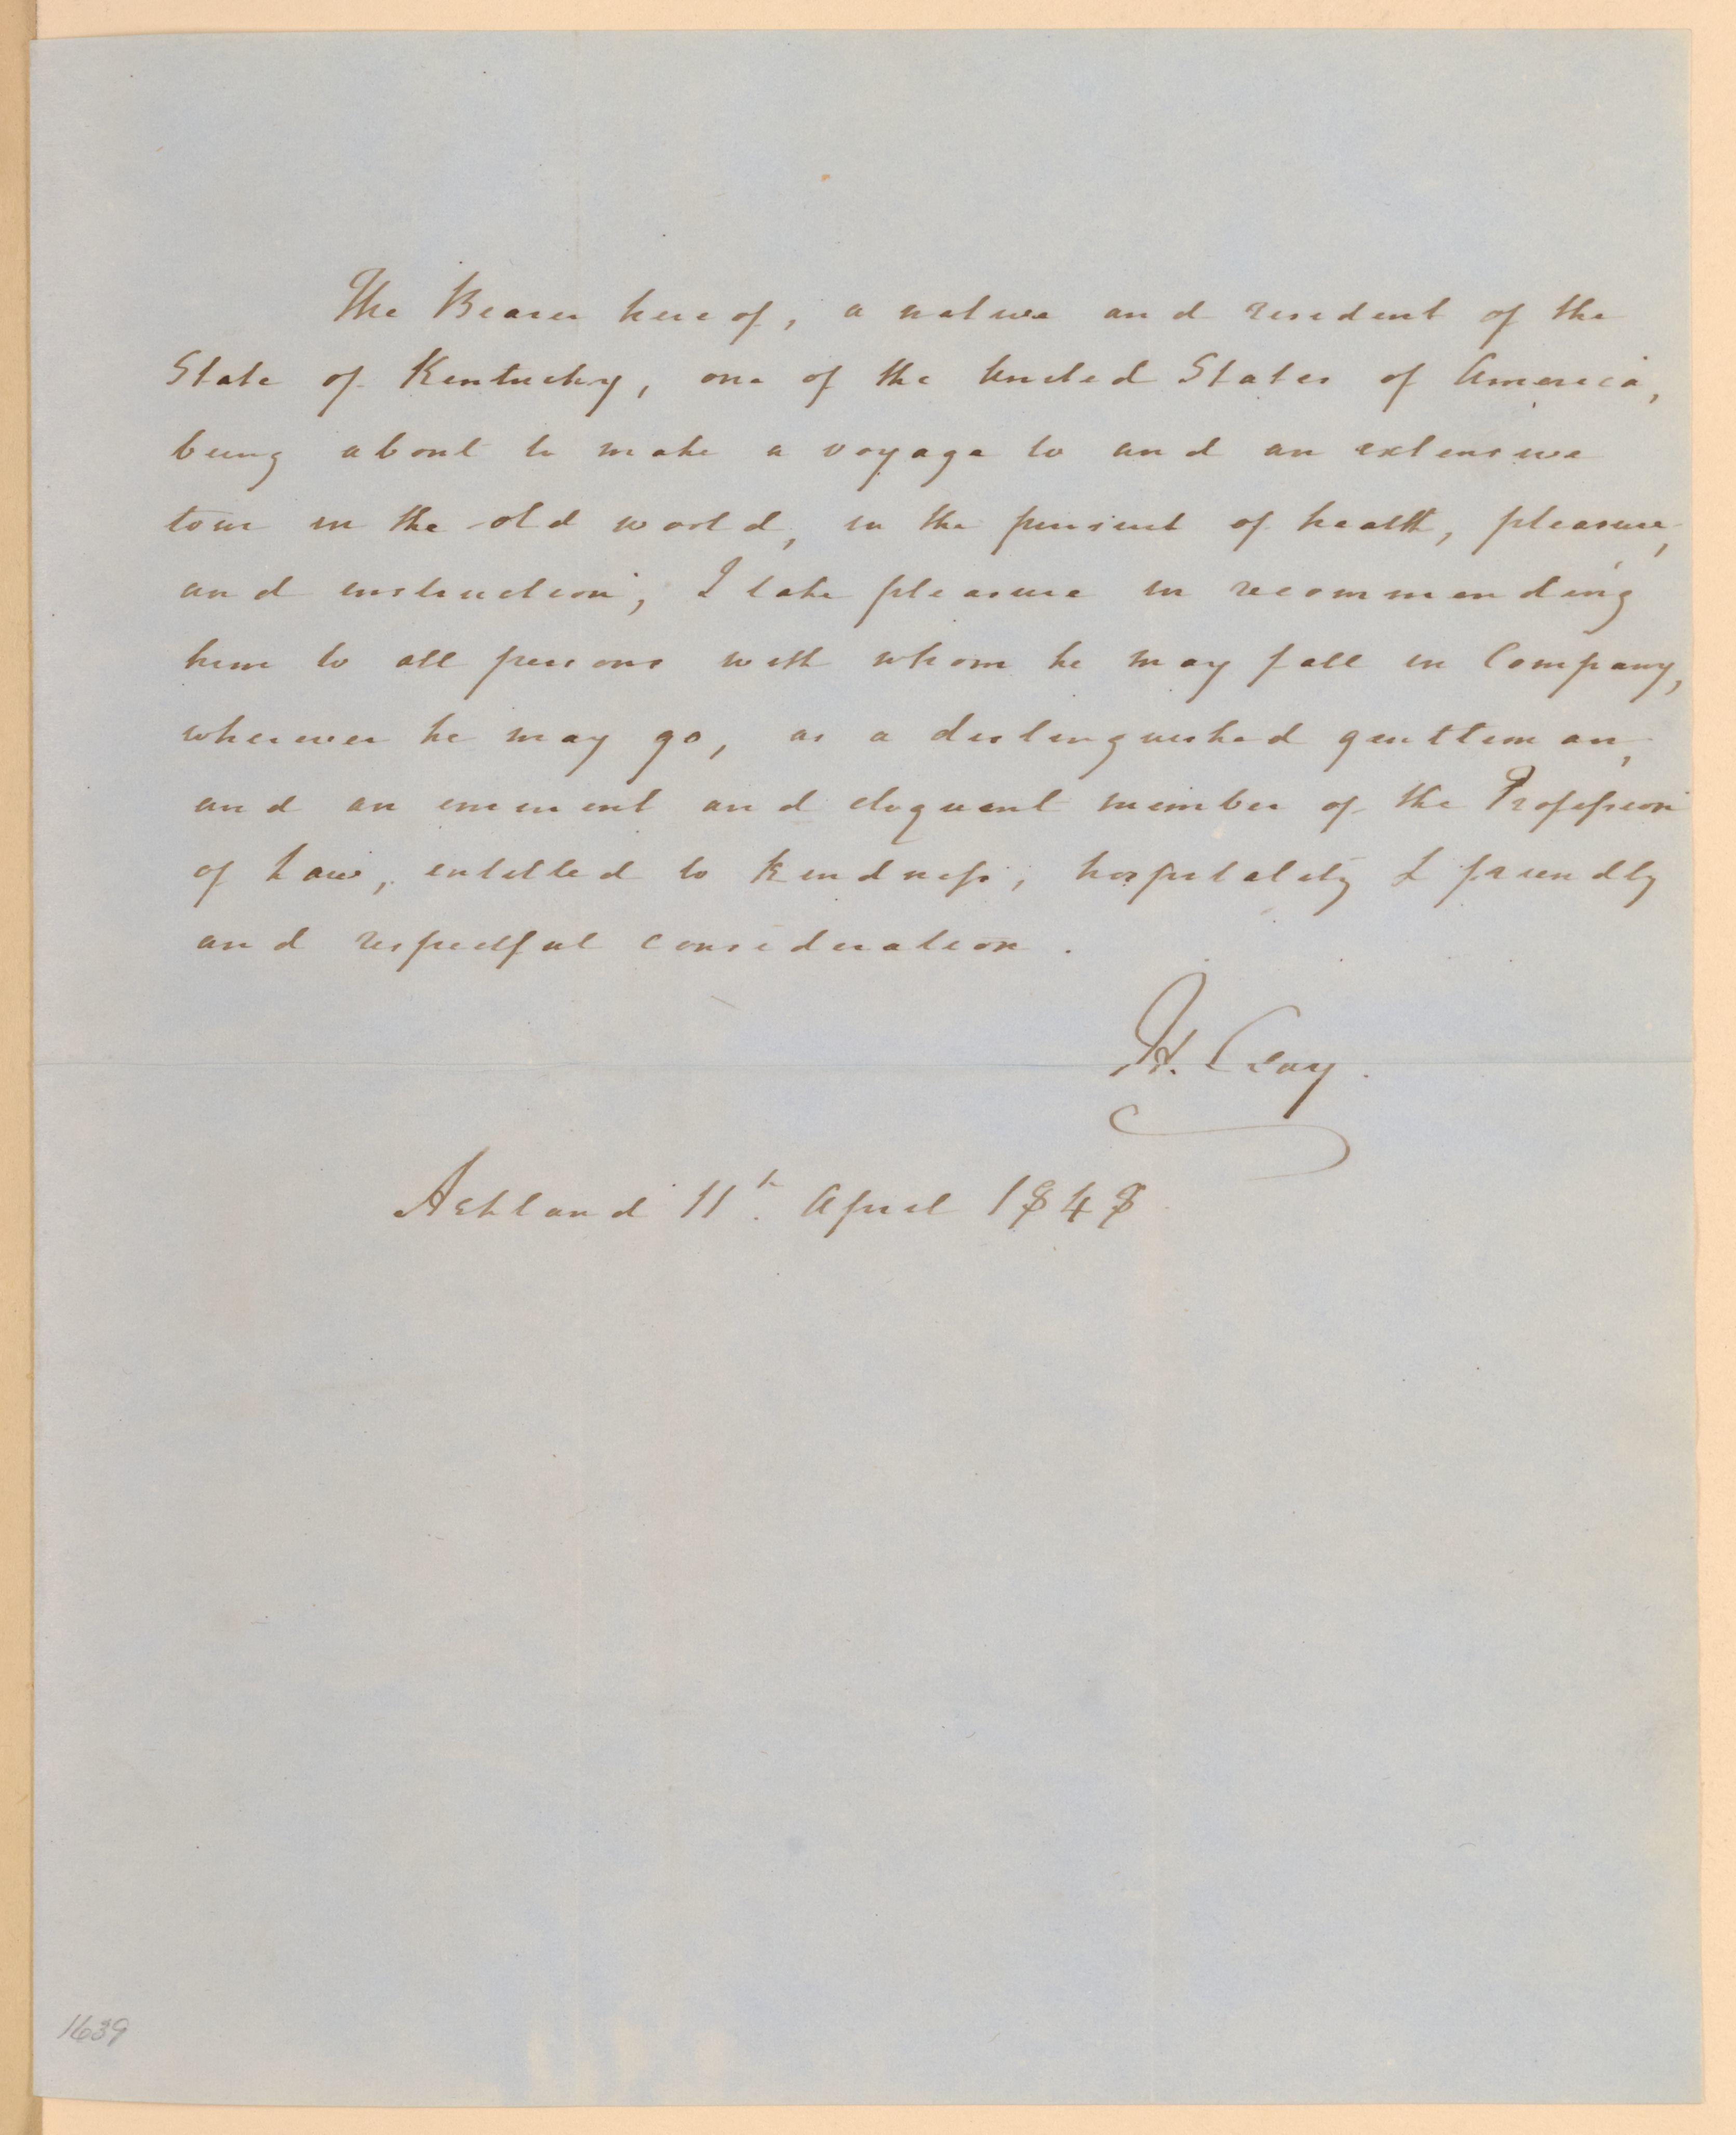 The Bearer hereof, a native and resident of the
State of Kentucky, one of the United States of America,
being about to make a voyage to and an extensive
tour in the old world, in the pursuit of health, pleasure,
and instruction, I take pleasure in recommending
him to all persons with whom he may fall in Company,
wherever he may go, as a distinguished gentleman,
and an eminent and eloquent member of the Profession
of Law, entitled to kindness, hospitality & friendly
and respectful consideration.
H. Clay.
Ashland 11h. April 1848
1639